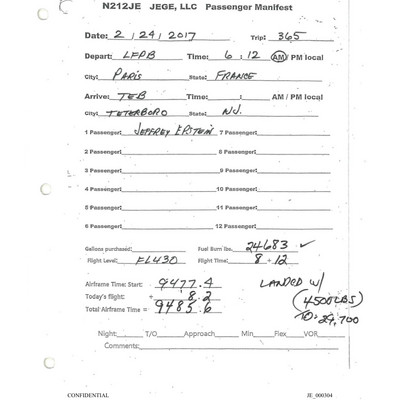 N212JE JEGE, LLC Passenger Manifest
Date: 2/24/2017 Trip: 365
Depart: LFPB Time: 6:12 AM / PM local
City: PARIS State: FRANCE
Arrive: TEB Time: : AM / PM local
City: TETERBORO State: NJ.
1 Passenger: JEFFREY EPSTEIN 7 Passenger:
2 Passenger: 8 Passenger:
3 Passenger: 9 Passenger:
4 Passenger: 10 Passenger:
5 Passenger: 11 Passenger:
6 Passenger: 12 Passenger:
Gallons purchased: Fuel Burn lbs. 24683 ✓
Flight Level: FL430 Flight Time: 8 + 12
Airframe Time: Start: 9477.4
Today's flight: + 8.2
Total Airframe Time = 9485.6
LANDED W/
(4500LBS)
TO: 29,700
Night: T/O Approach Min Flex VOR
Comments:
CONFIDENTIAL JE_000304